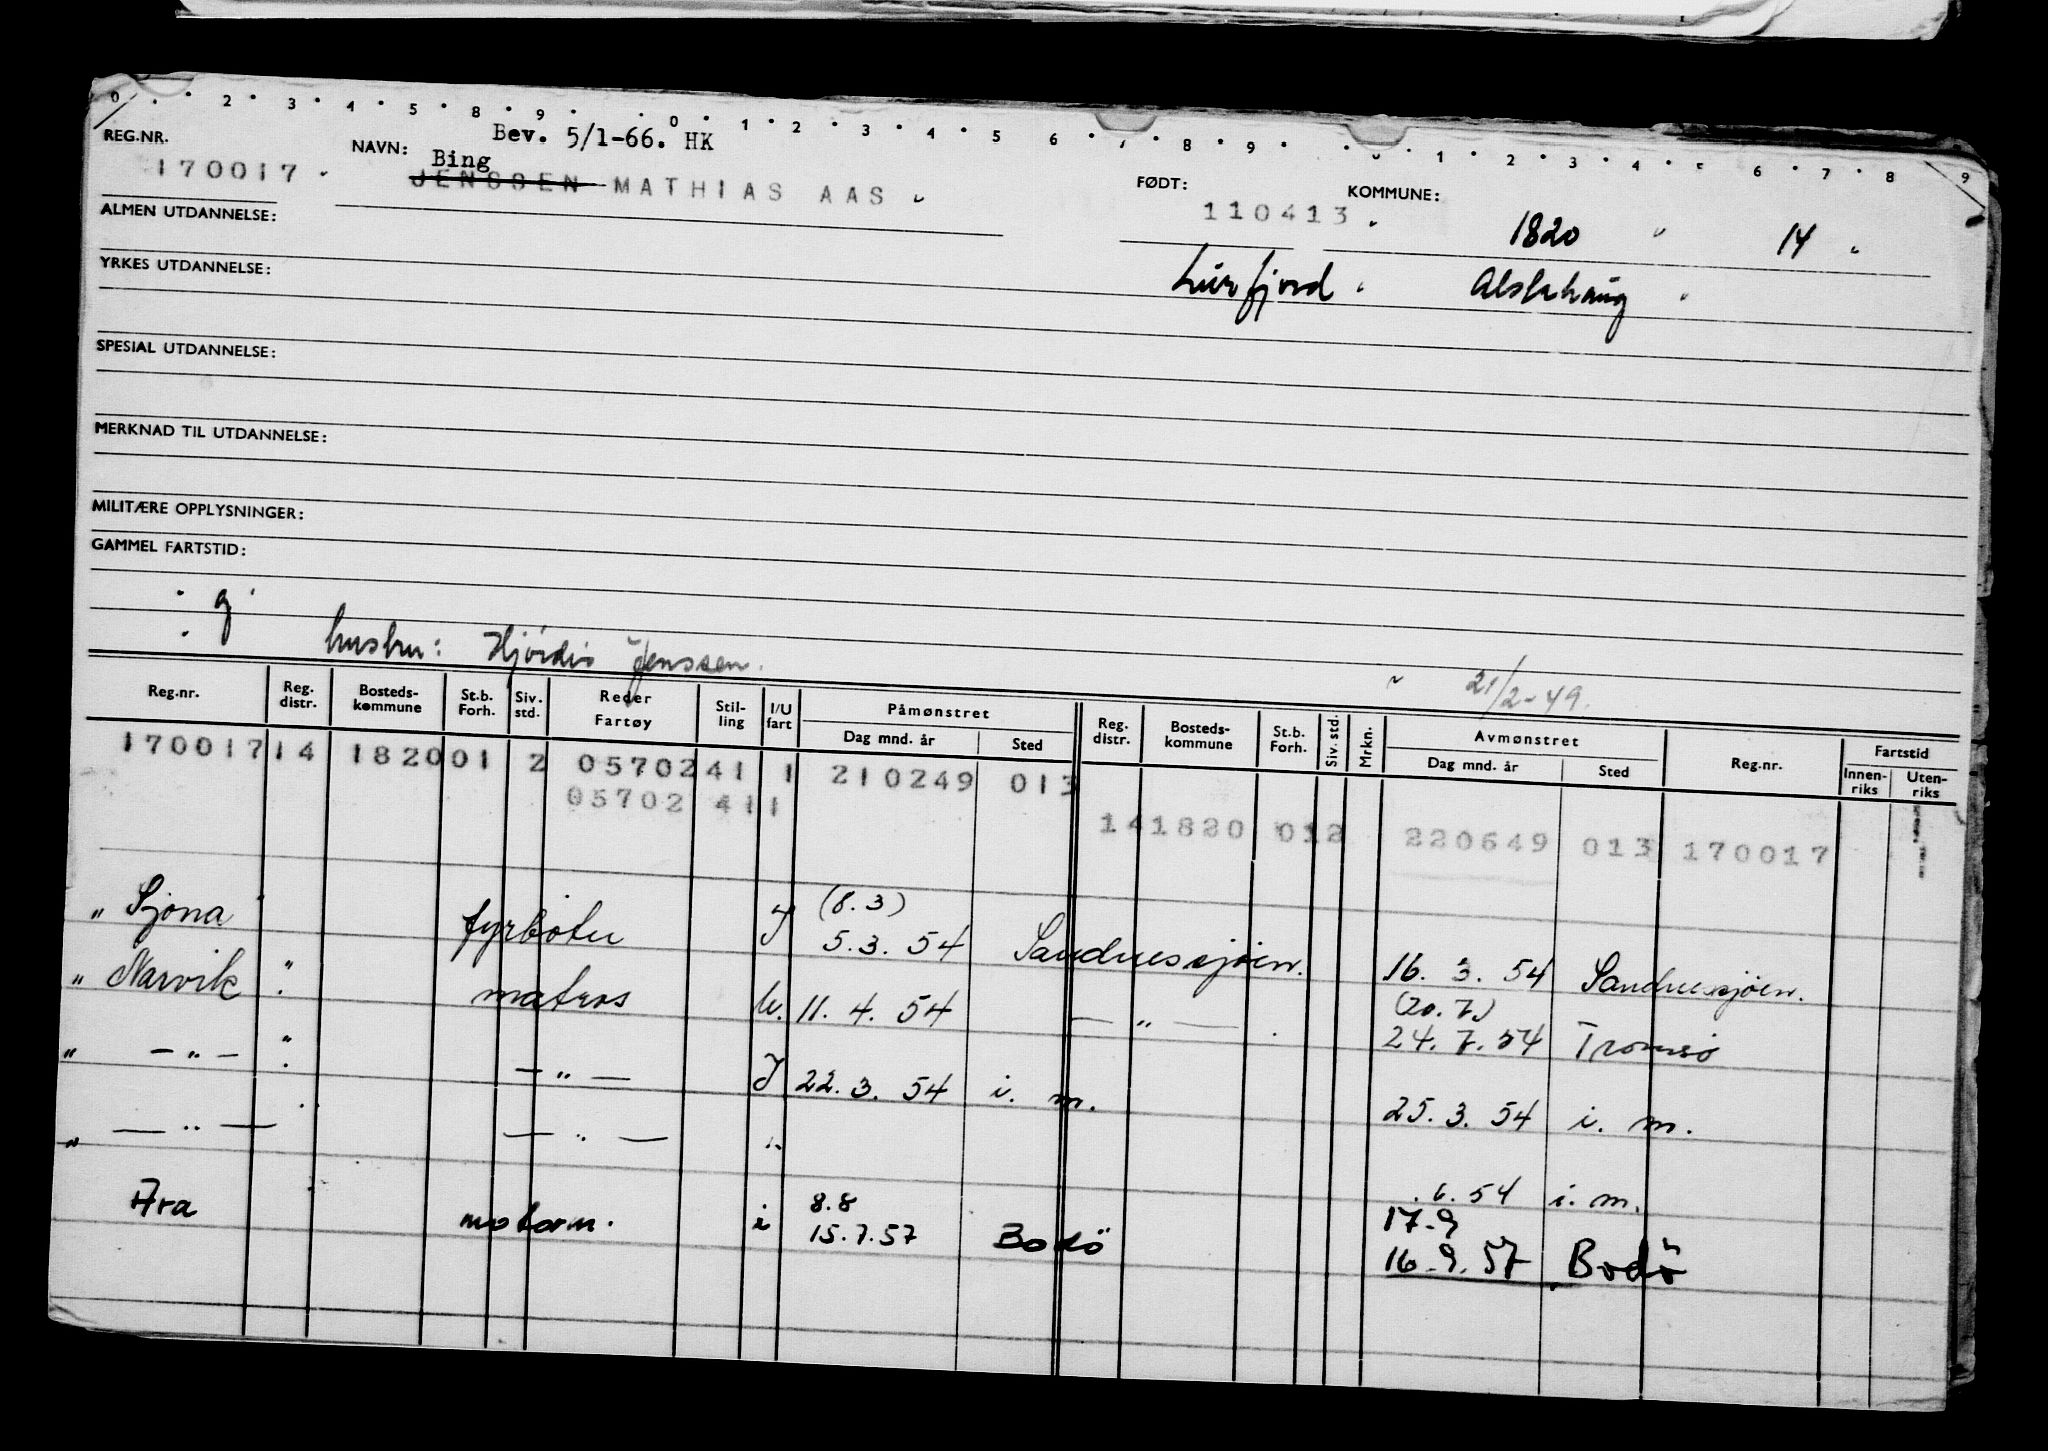 0 2 3 4 5 8 9 0 1 2 3 4 5 6 7 8 9 0 1 2 3 4 5 6 7 8 9
REG.NR.
170017
NAVN: Bev. 5/1-66. HK
Bing
JENSSEN MATHIAS AAS
FØDT: 110413
KOMMUNE: 1820 14
ALMEN UTDANNELSE:
YRKES UTDANNELSE:
Alstahaug
SPESIAL UTDANNELSE:
MERKNAD TIL UTDANNELSE:
MILITÆRE OPPLYSNINGER:
GAMMEL FARTSTID:
g
hustru: Hjördis Jenssen.
21/2-49.
Reg.nr. Reg. distr. Bosteds-kommune St.b. Forh. Siv. std. Reder Fartøy Stil-ling I/U fart Påmønstret Dag mnd. år Sted Reg. distr. Bosteds-kommune St.b. Forh. Siv. std. Mrkn. Avmønstret Dag mnd. år Sted Reg.nr. Fartstid Innen-riks Uten-riks
170017 14 1820 01 2 05702 41 1 210249 013
05702 41 1
14 1820 01 2 220649 013 170017
" Sjona fyrböter I (8.3) 5.3.54 Sandnessjøen. 16.3.54 Sandnessjøen.
" Narvik matros U. 11.4.54 — " — (20.7.) 24.7.54 Tromsö
" — " — — " — I 22.3.54 i. m. 25.3.54 i. m.
" — " — — " — " .6.54 i. m.
Ara motorm. i 8.8 15.7.57 Bodö 17.9 16.9.57 Bodö